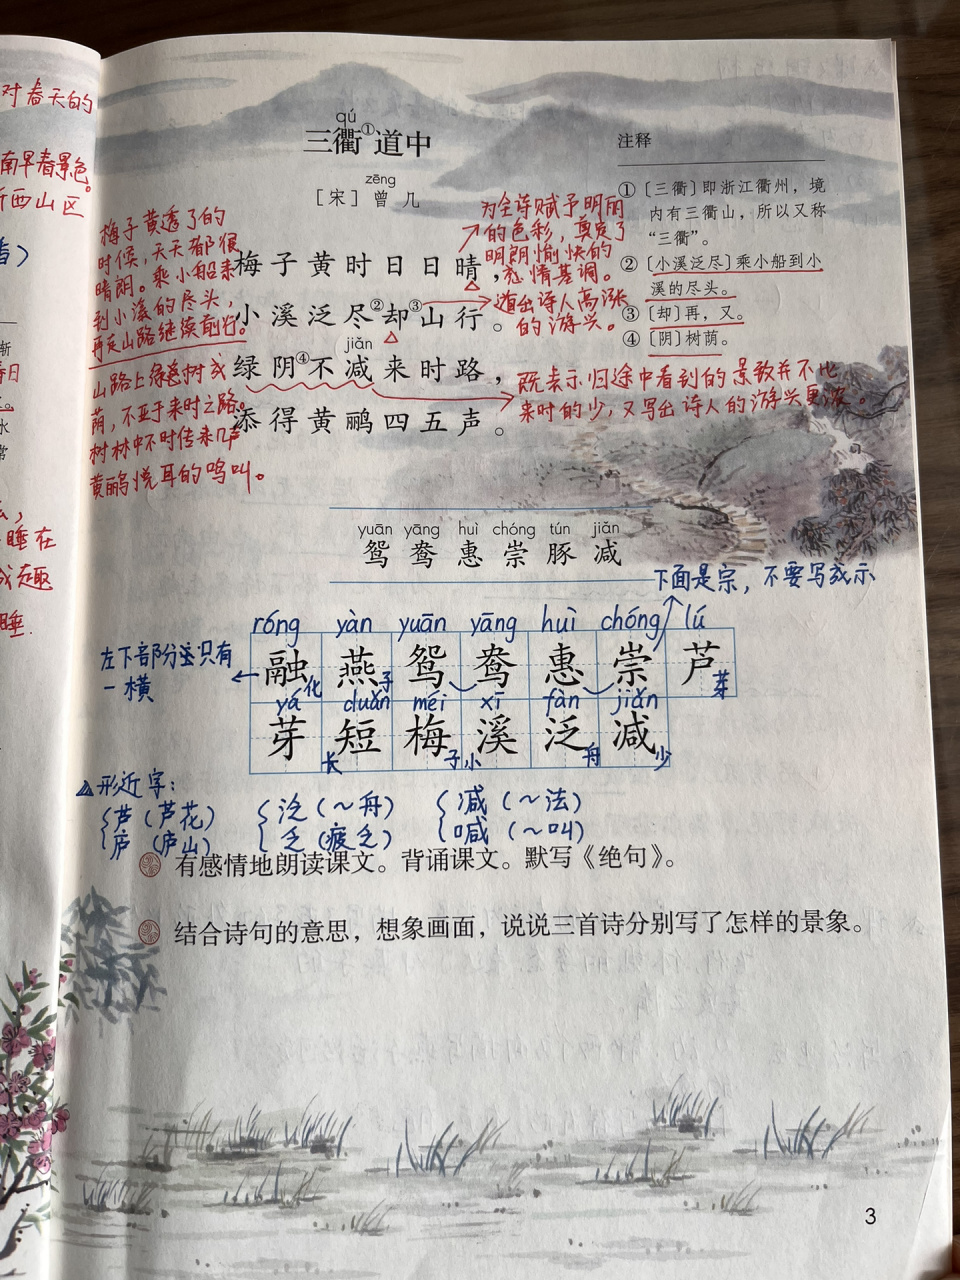 对春天的
南早春景色。
西山区
qú
三衢①道中
zēng
[宋] 曾 几
梅子黄时日日晴，
小溪泛尽②却③山行。
jiǎn
绿阴④不减来时路，
添得黄鹂四五声。
注释
①〔三衢〕即浙江衢州，境
内有三衢山，所以又称
“三衢”。
②〔小溪泛尽〕乘小船到小
溪的尽头。
③〔却〕再，又。
④〔阴〕树荫。
梅子黄透了的
时候，天天都很
晴朗。乘小船来
到小溪的尽头，
再走山路继续前行。
山路上绿色树成
荫，不亚于来时之路。
树林中不时传来几声
黄鹂悦耳的鸣叫。
为全诗赋予明丽
的色彩，奠定了
明朗愉快的
感情基调。
道出诗人高涨
的游兴。
既表示归途中看到的景致并不比
来时的少，又写出诗人的游兴更浓。
睡在
成趣
睡.
yuān yāng huì chóng tún jiǎn
鸳 鸯 惠 崇 豚 减
下面是宗，不要写成示
róng yàn yuān yāng huì chóng lú
左下部分竖只有
一横
融 燕 鸳 鸯 惠 崇 芦
化 子 芽
yá duǎn méi xī fàn jiǎn
芽 短 梅 溪 泛 减
长 子 小 舟 少
形近字：
芦（芦花） 泛（～舟） 减（～法）
庐（庐山） 乏（疲乏） 喊（～叫）
有感情地朗读课文。背诵课文。默写《绝句》。
结合诗句的意思，想象画面，说说三首诗分别写了怎样的景象。
3